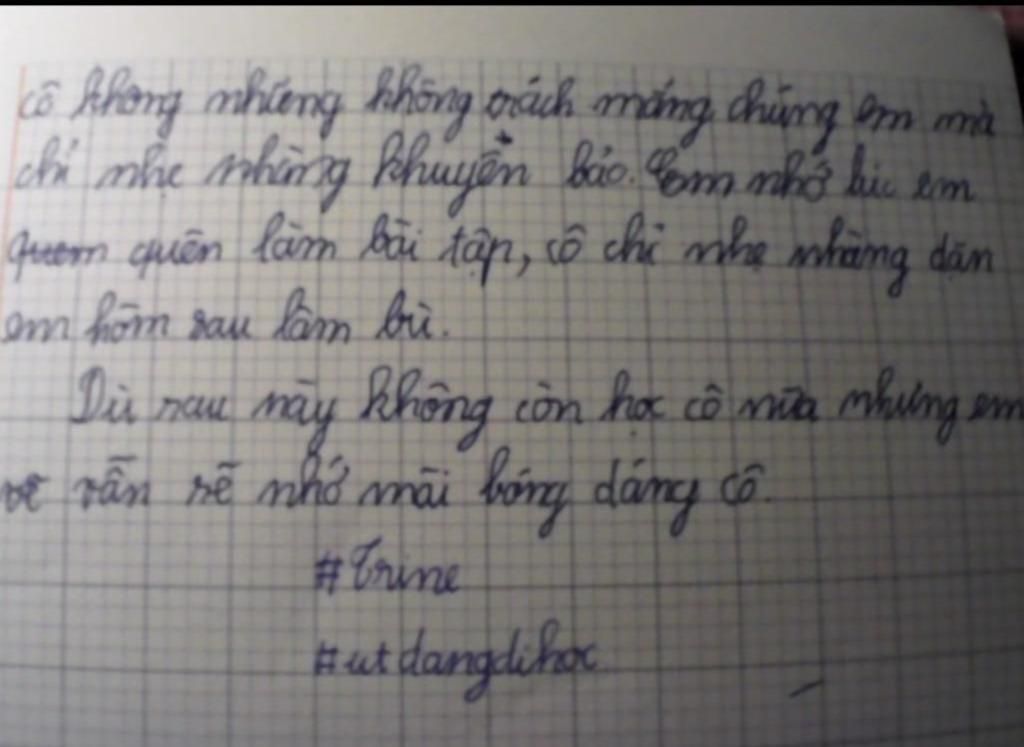 cô không những không trách mắng chúng em mà
chỉ nhẹ nhàng khuyên bảo. Em nhớ lúc em
quên làm bài tập, cô chỉ nhẹ nhàng dặn
em hôm sau làm bù.
Dù sau này không còn học cô nữa nhưng em
vẫn sẽ nhớ mãi bóng dáng cô.
#Trine
#utdangdihoc